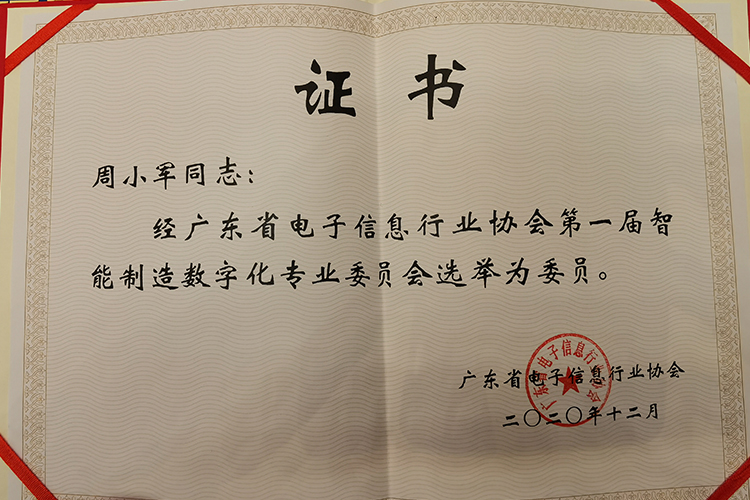 证书
周小军同志：
经广东省电子信息行业协会第一届智
能制造数字化专业委员会选举为委员。
广东省电子信息行业协会
广东省电子信息行业协会
二〇二〇年十二月